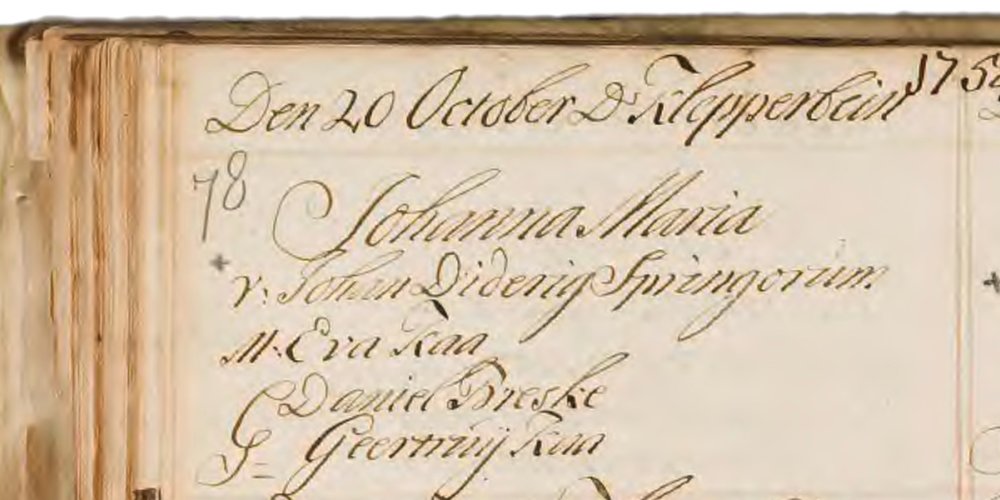 Den 20 October Ds Klepperbein 175
78
Johanna Maria
v: Johan Diderig Springorum
M: Eva Kaa
Daniel Breske
G= Geertruÿ Kaa